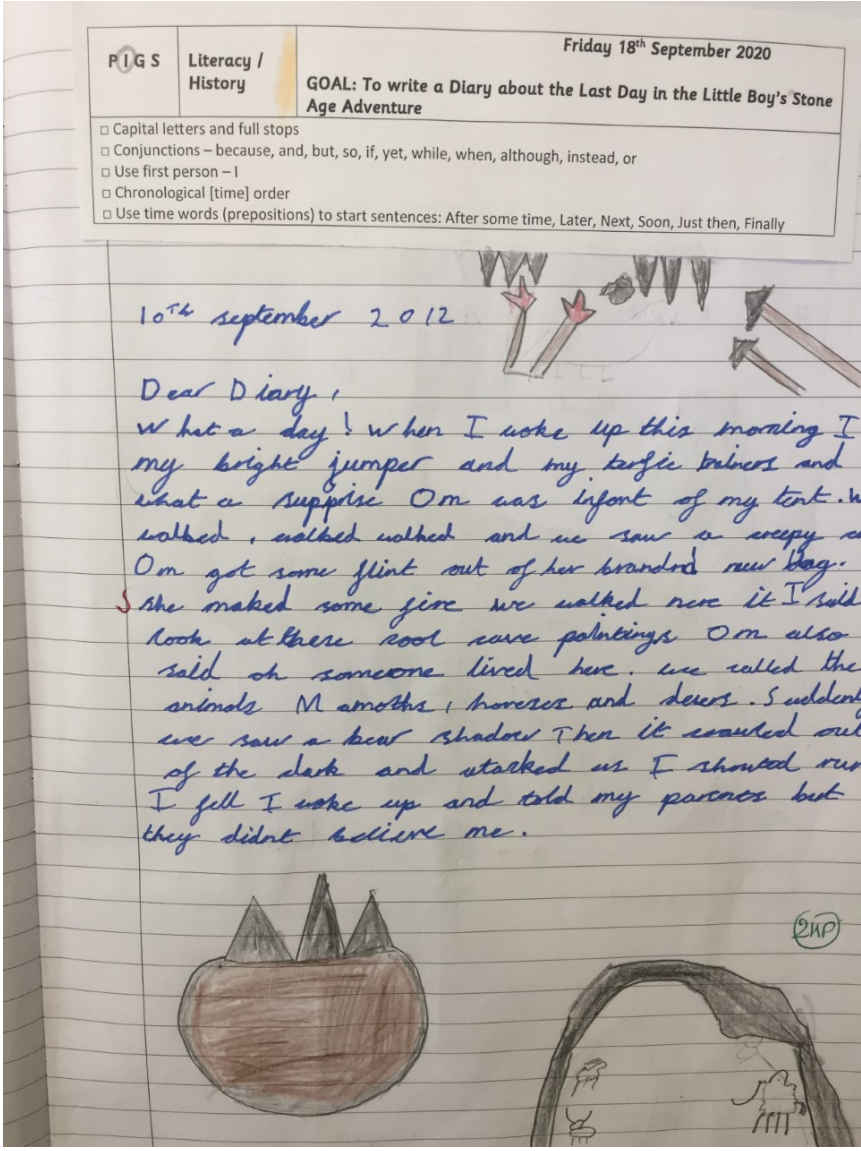 PIGS
Literacy /
History
Friday 18th September 2020
GOAL: To write a Diary about the Last Day in the Little Boy's Stone
Age Adventure
□ Capital letters and full stops
□ Conjunctions – because, and, but, so, if, yet, while, when, although, instead, or
□ Use first person – I
□ Chronological [time] order
□ Use time words (prepositions) to start sentences: After some time, Later, Next, Soon, Just then, Finally
10Th september 2012
Dear Diary,
What a day! When I woke up this morning I
my bright jumper and my and
what a supprise Om was infont of my tent. W
walked, walked walked and we saw a creepy
Om got some flint out of her brandnd new bag.
S she maked some fire we walked nere it I said
look at these cool cave paintings Om also
said oh someone lived here. we called the
animals Mamoths, horeses and deers. Sudden
we saw a bear shadow Then it out
of the dark and atacked us I showted run
I fell I woke up and told my parents but
they didnt believe me.
2HP